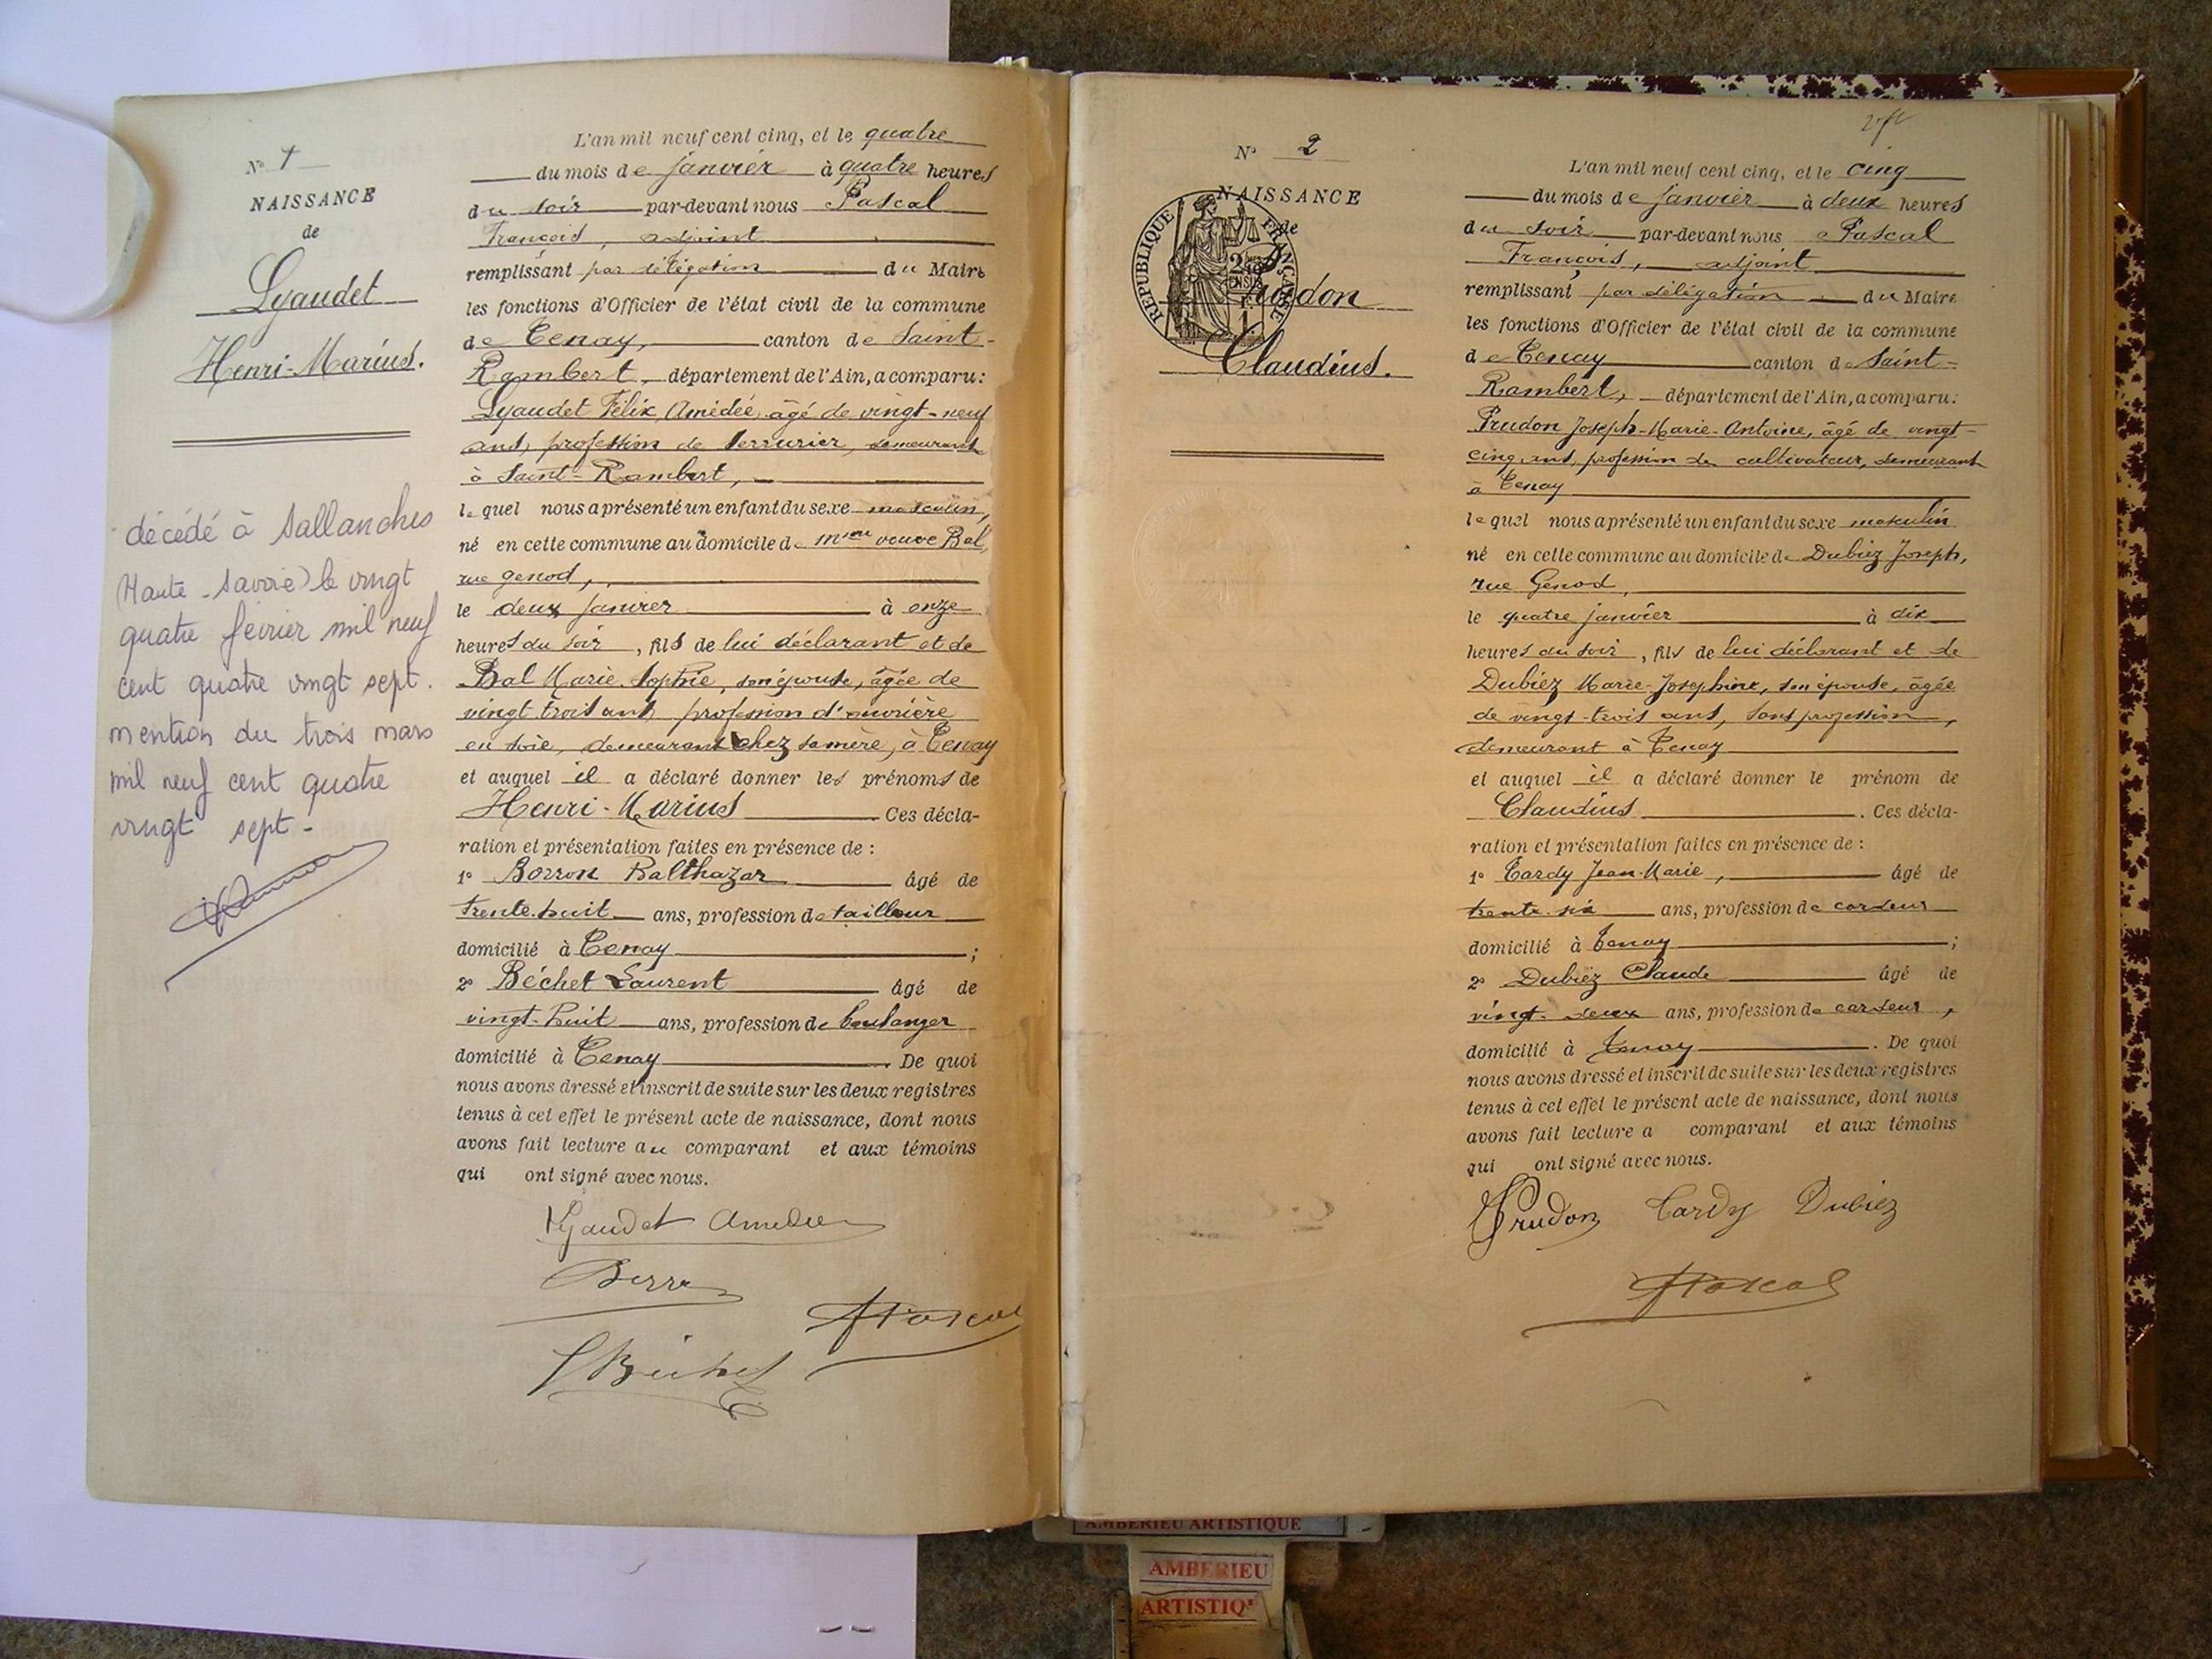 N° 1
NAISSANCE
de
Lyaudet
Henri-Marius.
décédé à Sallanches
(Haute-Savoie) le vingt
quatre février mil neuf
cent quatre vingt sept.
mention du trois mars
mil neuf cent quatre
vingt sept -
L'an mil neuf cent cinq, et le quatre
du mois de janvier à quatre heures
du soir par-devant nous Pascal
François, adjoint
remplissant par délégation du Maire
les fonctions d'Officier de l'état civil de la commune
de Tenay, canton de Saint-
Rambert, département de l'Ain, a comparu:
Lyaudet Félix Amédée, âgé de vingt-neuf
ans, profession de serrurier, demeurant
à Saint-Rambert,
lequel nous a présenté un enfant du sexe masculin,
né en cette commune au domicile de Mme veuve Bal,
rue genod,
le deux janvier à onze
heures du soir, fils de lui déclarant et de
Bal Marie Sophie, son épouse, âgée de
vingt trois ans, profession d'ouvrière
en soie, demeurant chez sa mère, à Tenay
et auquel il a déclaré donner les prénoms de
Henri-Marius. Ces décla-
ration et présentation faites en présence de :
1° Borron Balthazar âgé de
trente-huit ans, profession de tailleur
domicilié à Tenay ;
2° Béchet Laurent âgé de
vingt-huit ans, profession de boulanger
domicilié à Tenay. De quoi
nous avons dressé et inscrit de suite sur les deux registres
tenus à cet effet le présent acte de naissance, dont nous
avons fait lecture au comparant et aux témoins
qui ont signé avec nous.
Lyaudet Amédée
N° 2
NAISSANCE
de
Prudon
Claudius.
REPUBLIQUE FRANÇAISE
L'an mil neuf cent cinq, et le cinq
du mois de janvier à deux heures
du soir par-devant nous Pascal
François, adjoint
remplissant par délégation du Maire
les fonctions d'Officier de l'état civil de la commune
de Tenay canton de Saint-
Rambert, département de l'Ain, a comparu:
Prudon Joseph-Marie-Antoine, âgé de vingt-
cinq ans, profession de cultivateur, demeurant
à Tenay
lequel nous a présenté un enfant du sexe masculin
né en cette commune au domicile de Dubiez Joseph,
rue Genod,
le quatre janvier à dix
heures du soir, fils de lui déclarant et de
Dubiez Marie-Josephine, son épouse, âgée
de vingt-trois ans, sans profession,
demeurant à Tenay
et auquel il a déclaré donner le prénom de
Claudius. Ces décla-
ration et présentation faites en présence de :
1° Tardy Jean-Marie, âgé de
trente-six ans, profession de cardeur
domicilié à Tenay ;
2° Dubiez Claude âgé de
vingt-deux ans, profession de cardeur,
domicilié à Tenay. De quoi
nous avons dressé et inscrit de suite sur les deux registres
tenus à cet effet le présent acte de naissance, dont nous
avons fait lecture a comparant et aux témoins
qui ont signé avec nous.
Prudon Tardy Dubiez
Pascal
AMBERIEU ARTISTIQUE
AMBERIEU
ARTISTIQ